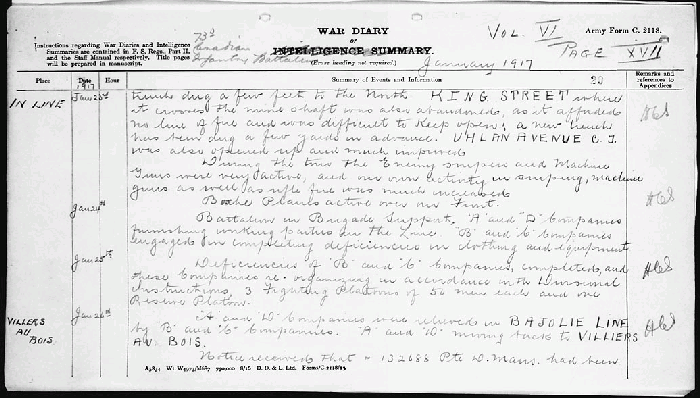 WAR DIARY
or
INTELLIGENCE SUMMARY.
(Erase heading not required.)
Army Form C. 2118.
Instructions regarding War Diaries and Intelligence
Summaries are contained in F. S. Regs., Part II.
and the Staff Manual respectively. Title pages
will be prepared in manuscript.
73d
Canadian
Infantry Battalion
Vol. VI
Page XVII
January 1917
Place
Date
1917
Hour
Summary of Events and Information
22
Remarks and
references to
Appendices
IN LINE
Jan 23rd
trench dug a few feet to the North KING STREET where
it crosses the mine shaft was also abandoned, as it afforded
no line of fire and was difficult to keep open; a new trench
has been dug a few yards in advance. UHLAN AVENUE C.T.
was also opened up and much improved
During the time the Enemy snipers and Machine
Guns were very active, and our own activity in sniping, machine
guns as well as rifle fire was much increased
Boche Planes active over our Front.
Jan 24th
Battalion in Brigade Support. "A" and "D" Companies
furnishing working parties in the Line. "B" & "C" Companies
engaged in completing deficiencies in clothing and equipment
Jan 25th
Deficiencies of "B" and "C" Companies, completed, and
these Companies re-organizing in accordance with Divisional
instructions, 3 Fighting Platoons of men each and one
Reserve Platoon.
VILLERS
AU
BOIS.
Jan 26th
"A" and "D" Companies was relieved in BAJOLIE LINE
by "B" and "C" Companies. "A" and "D" moving back to VILLIERS
AU BOIS.
Notice received that # 132688 Pte D. Mans. had been